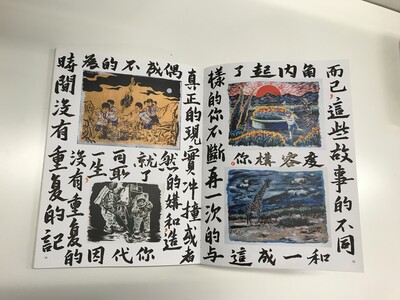 而已這些故事的不同
角度和
内容一
起構成
了你這
樣的你不斷再一次的与
真正的現實冲撞或者
偶然的媾和造
成就了你
不可取代
的因
為一生
沒有重复的
時間沒有重复的記